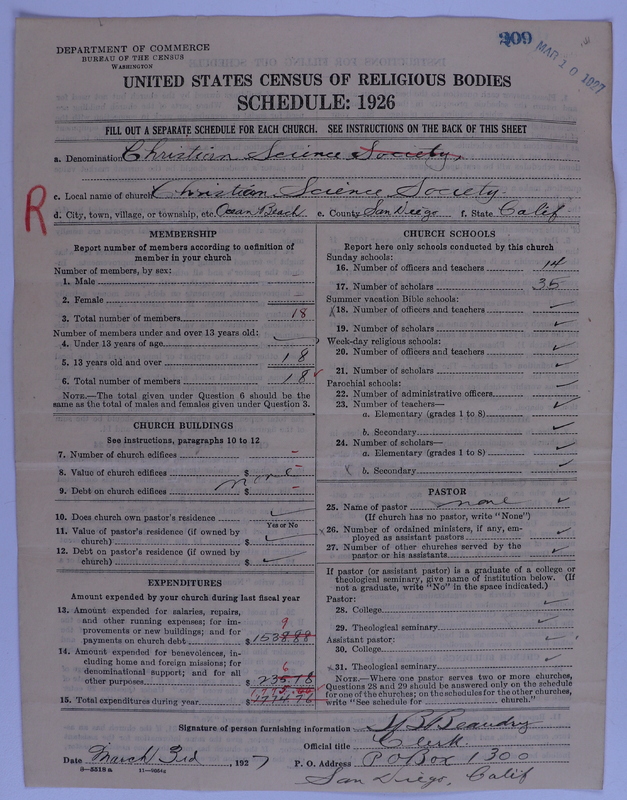 DEPARTMENT OF COMMERCE
BUREAU OF THE CENSUS
WASHINGTON
209
MAR 10 1927
UNITED STATES CENSUS OF RELIGIOUS BODIES
SCHEDULE: 1926
FILL OUT A SEPARATE SCHEDULE FOR EACH CHURCH. SEE INSTRUCTIONS ON THE BACK OF THIS SHEET
a. Denomination Christian Science Society.
R
c. Local name of church Christian Science Society.
d. City, town, village, or township, etc. Ocean Beach e. County San Diego f. State Calif
MEMBERSHIP
Report number of members according to definition of
member in your church
Number of members, by sex:
1. Male
2. Female
3. Total number of members 18
Number of members under and over 13 years old:
4. Under 13 years of age
5. 13 years old and over 18
6. Total number of members 18
NOTE.—The total given under Question 6 should be the
same as the total of males and females given under Question 3.
CHURCH BUILDINGS
See instructions, paragraphs 10 to 12
7. Number of church edifices
8. Value of church edifices $ none
9. Debt on church edifices $
10. Does church own pastor's residence
Yes or No
11. Value of pastor's residence (if owned by
church) $
12. Debt on pastor's residence (if owned by
church) $
EXPENDITURES
Amount expended by your church during last fiscal year
13. Amount expended for salaries, repairs,
and other running expenses; for im-
provements or new buildings; and for
payments on church debt $ 1538.88
9
14. Amount expended for benevolences, in-
cluding home and foreign missions; for
denominational support; and for all
other purposes $ 235.18
6
15. Total expenditures during year $
CHURCH SCHOOLS
Report here only schools conducted by this church
Sunday schools:
16. Number of officers and teachers 14
17. Number of scholars 35
Summer vacation Bible schools:
18. Number of officers and teachers
19. Number of scholars
Week-day religious schools:
20. Number of officers and teachers
21. Number of scholars
Parochial schools:
22. Number of administrative officers
23. Number of teachers—
a. Elementary (grades 1 to 8)
b. Secondary
24. Number of scholars—
a. Elementary (grades 1 to 8)
b. Secondary
PASTOR
25. Name of pastor none
(If church has no pastor, write "None")
26. Number of ordained ministers, if any, em-
ployed as assistant pastors
27. Number of other churches served by the
pastor or his assistants
If pastor (or assistant pastor) is a graduate of a college or
theological seminary, give name of institution below. (If
not a graduate, write "No" in the space indicated.)
Pastor:
28. College
29. Theological seminary
Assistant pastor:
30. College
31. Theological seminary
NOTE.—Where one pastor serves two or more churches,
Questions 28 and 29 should be answered only on the schedule
for one of the churches; on the schedules for the other churches,
write "See schedule for church."
Signature of person furnishing information Beaudry
Official title Clerk.
Date March 3rd, 1927 P. O. Address P O Box 1300
San Diego, Calif